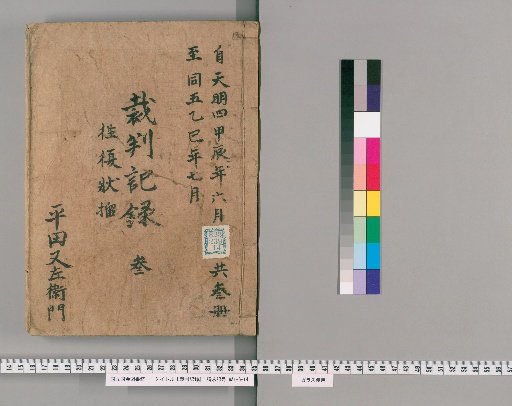 自天明四甲辰年六月 共叁册
至同五乙巳年七月
裁判記録 叁
往復状擂
平田又左衛門